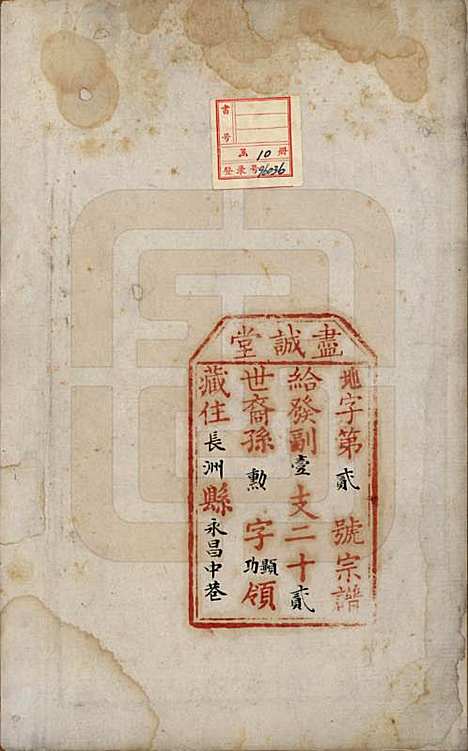 書號
共 10 冊
登录号 96036
盡誠堂
地字第貳號宗譜
給發副壹支二十貳
世裔孫勳字顯功領
藏住長洲縣永昌中巷